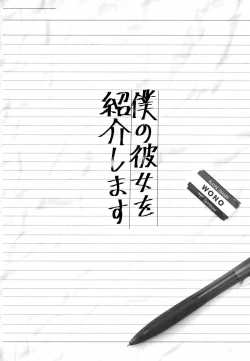 僕の彼女を
紹介します
WONO